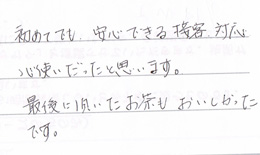 初めてでも、安心できる接客、対応
心使いだったと思います。
最後に頂いたお茶も おいしかった
です。